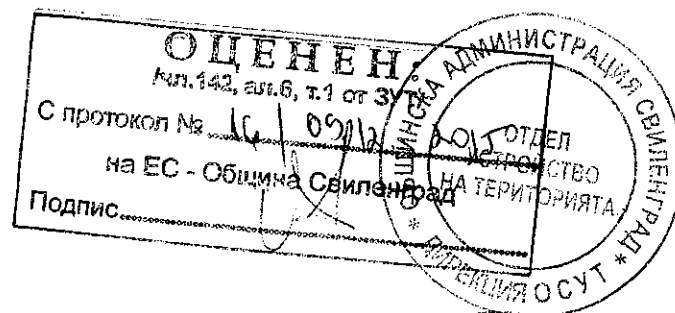 ОЦЕНЕН:
/чл.142, ал.6, т.1 от ЗУТ/
С протокол № 16 / 09.12 2015
на ЕС - Община Свиленград
Подпис
ОБЩИНСКА АДМИНИСТРАЦИЯ СВИЛЕНГРАД * ДИРЕКЦИЯ ОСУТ *
ОТДЕЛ
УСТРОЙСТВО
НА ТЕРИТОРИЯТА